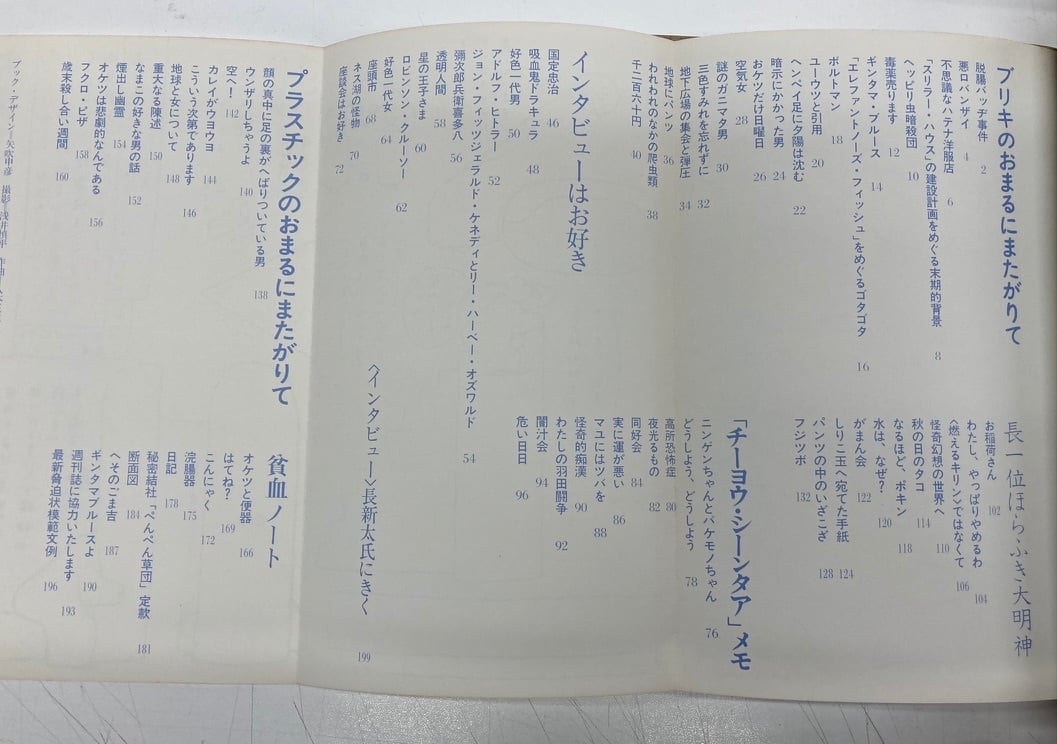 ブリキのおまるにまたがりて
脱腸バッヂ事件 2
悪ロバンザイ 4
不思議なハテナ洋服店 6
「スリラー・ハウス」の建設計画をめぐる末期的背景 8
ヘッピリ虫暗殺団 10
毒薬売ります 12
ギンタマ・ブルース 14
「エレファントノーズ・フィッシュ」をめぐるゴタゴタ 16
ポルトマン 18
ユーウツと引用 20
ヘンペイ足に夕陽は沈む 22
暗示にかかった男 24
おケツだけ日曜日 26
空気女 28
謎のガニマタ男 30
三色すみれを忘れずに 32
地下広場の集会と弾圧 34
地球にパンツ 36
われわれのなかの爬虫類 38
千二百六十円 40
長一位ほらふき大明神
お稲荷さん 102
わたし、やっぱりやめるわ 104
〈燃えるキリン〉ではなくて 106
怪奇幻想の世界へ 110
秋の日のタコ 114
なるほど、ポキン 118
水は、なぜ? 120
がまん会 122
しりこ玉へ宛てた手紙 124
パンツの中のいざこざ 128
フジツボ 132
インタビューはお好き
国定忠治 46
吸血鬼ドラキュラ 48
好色一代男 50
アドルフ・ヒトラー 52
ジョン・フィッツジェラルド・ケネディとリー・ハーベー・オズワルド 54
彌次郎兵衛喜多八 56
透明人間 58
星の王子さま 60
ロビンソン・クルーソー 62
好色一代女 64
座頭市 68
ネス湖の怪物 70
座談会はお好き 72
「チーヨウ・シーンタア」メモ
ニンゲンちゃんとバケモノちゃん 76
どうしよう、どうしよう 78
高所恐怖症 80
夜光るもの 82
同好会 84
実に運が悪い 86
マユにはツバを 88
怪奇的痴漢 90
わたしの羽田闘争 92
闇汁会 94
危い日日 96
〈インタビュー〉長新太氏にきく 199
プラスチックのおまるにまたがりて
顔の真中に足の裏がへばりついている男 138
ウンザリしちゃうよ 140
空へ! 142
カレイがウヨウヨ 144
こういう次第であります 146
地球と女について 148
重大なる陳述 150
なまこの好きな男の話 152
煙出し幽霊 154
オケツは悲劇的なんである 156
フクロ・ピザ 158
歳末殺し合い週間 160
貧血ノート
オケツと便器 166
はてね? 169
こんにゃく 172
浣腸器 175
日記 178
秘密結社「ぺんぺん草団」定款 181
断面図 184
へそのごま吉 187
ギンタマブルースよ 190
週刊誌に協力いたします 193
最新脅迫状模範文例 196
ブック・デザイン=矢吹申彦 撮影=浅井慎平